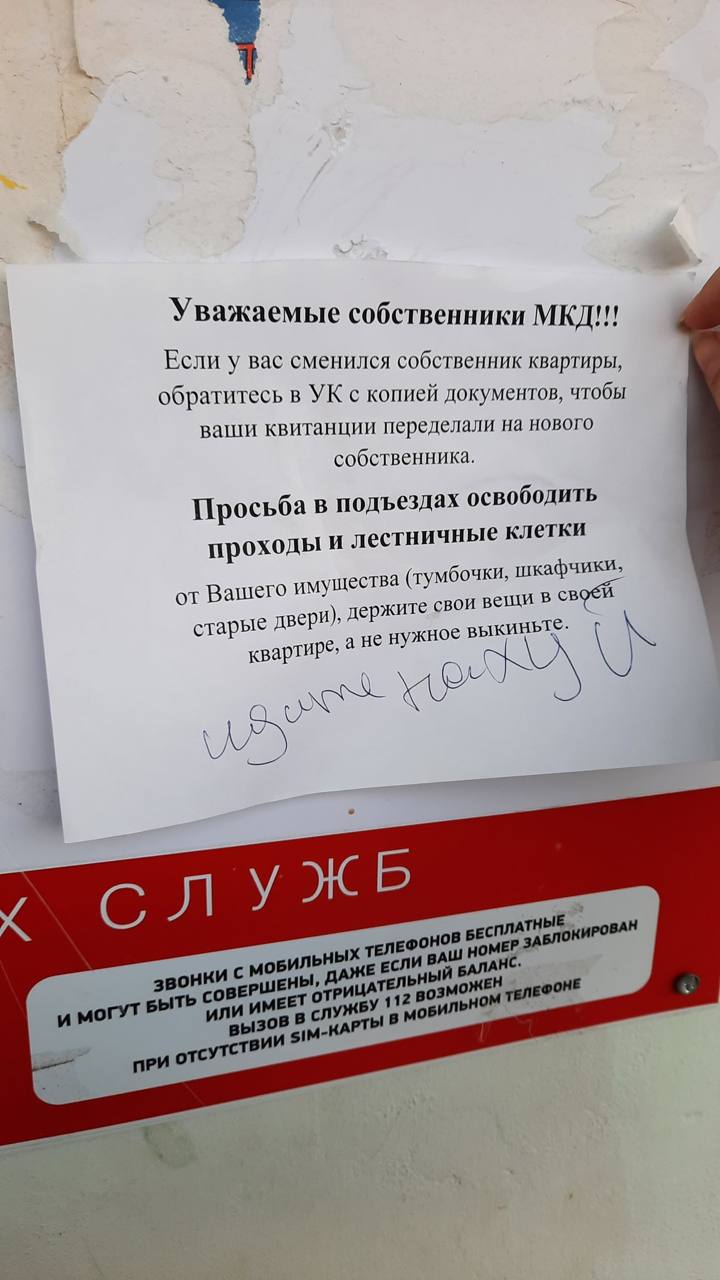 Уважаемые собственники МКД!!!
Если у вас сменился собственник квартиры,
обратитесь в УК с копией документов, чтобы
ваши квитанции переделали на нового
собственника.
Просьба в подъездах освободить
проходы и лестничные клетки
от Вашего имущества (тумбочки, шкафчики,
старые двери), держите свои вещи в своей
квартире, а не нужное выкиньте.
идите нахуй
Х СЛУЖБ
ЗВОНКИ С МОБИЛЬНЫХ ТЕЛЕФОНОВ БЕСПЛАТНЫЕ
И МОГУТ БЫТЬ СОВЕРШЕНЫ, ДАЖЕ ЕСЛИ ВАШ НОМЕР ЗАБЛОКИРОВАН
ИЛИ ИМЕЕТ ОТРИЦАТЕЛЬНЫЙ БАЛАНС.
ВЫЗОВ В СЛУЖБУ 112 ВОЗМОЖЕН
ПРИ ОТСУТСТВИИ SIM-КАРТЫ В МОБИЛЬНОМ ТЕЛЕФОНЕ